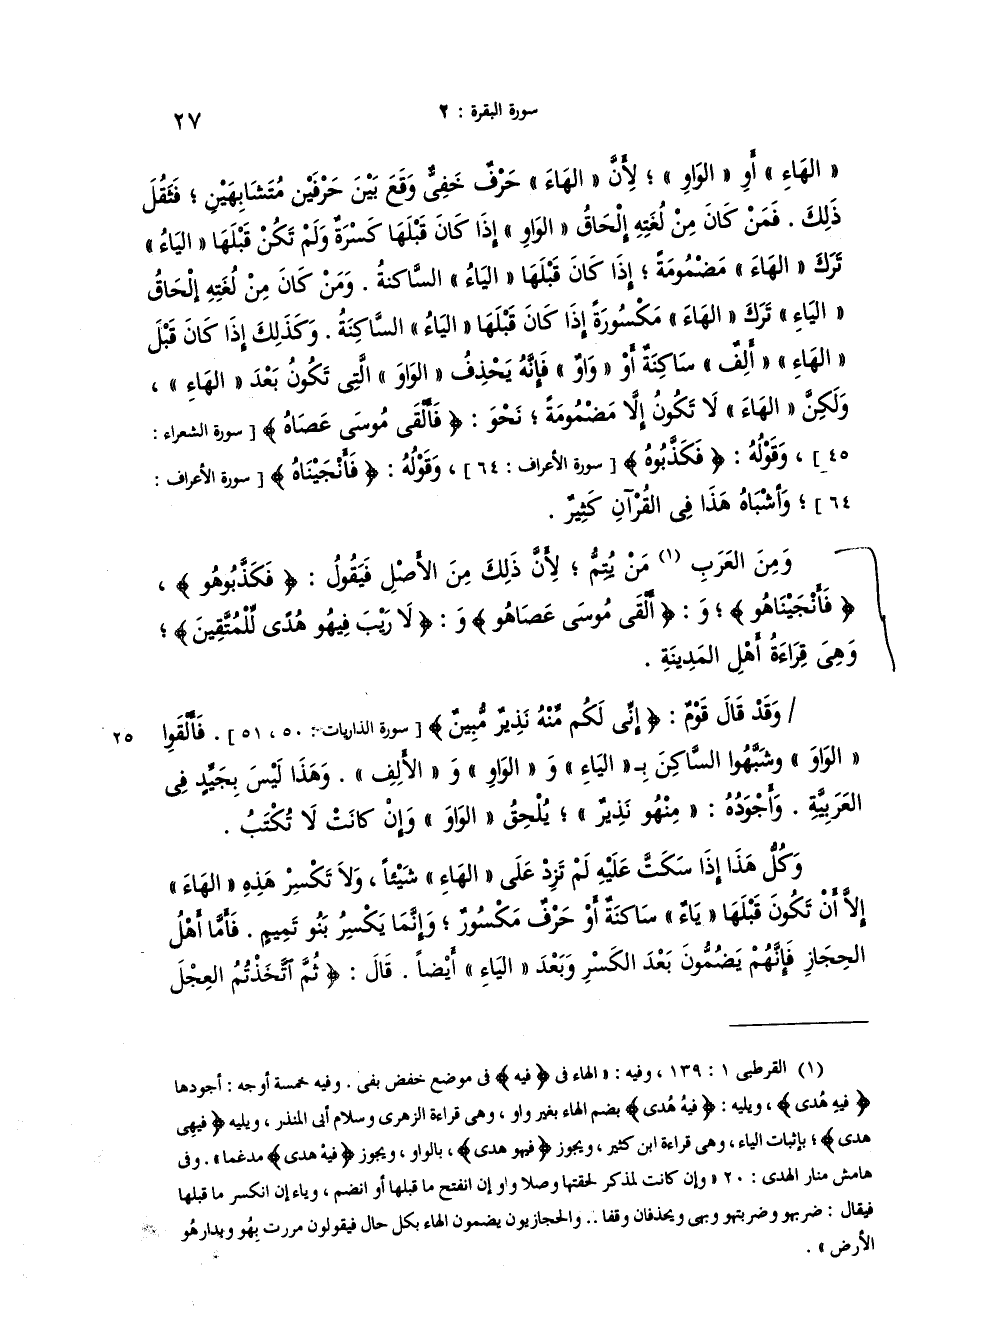 سورة البقرة : ٢
٢٧
« الهَاءِ » أَوِ « الوَاوِ » ؛ لِأَنَّ « الهَاءَ » حَرْفٌ خَفِىٌّ وَقَعَ بَيْنَ حَرْفَيْنِ مُتَشَابِهَيْنِ ؛ فَثَقُلَ
ذَلِكَ . فَمَنْ كَانَ مِنْ لُغَتِهِ إِلْحَاقُ « الوَاوِ » إِذَا كَانَ قَبْلَهَا كَسْرَةٌ وَلَمْ تَكُنْ قَبْلَهَا « اليَاءُ »
تَرَكَ « الهَاءَ » مَضْمُومَةً ؛ إِذَا كَانَ قَبْلَهَا « اليَاءُ » السَّاكنةُ . وَمَنْ كَانَ مِنْ لُغَتِهِ إِلْحَاقُ
« اليَاءِ » تَرَكَ « الهَاءَ » مَكْسُورَةً إِذَا كَانَ قَبْلَهَا « اليَاءُ » السَّاكِنَةُ . وَكَذَلِكَ إِذَا كَانَ قَبْلَ
« الهَاءِ » « أَلِفٌ » سَاكِنَةٌ أَوْ « وَاوٌ » فَإِنَّهُ يَحْذِفُ « الوَاوَ » الَّتِى تَكُونُ بَعْدَ « الهَاءِ » ،
وَلَكِنَّ « الهَاءَ » لَا تَكُونُ إِلَّا مَضْمُومَةً ؛ نَحْوَ : ﴿ فَأَلْقَى مُوسَى عَصَاهُ ﴾ [ سورة الشعراء :
٤٥ ] ، وَقَوْلُهُ : ﴿ فَكَذَّبُوهُ ﴾ [ سورة الأعراف : ٦٤ ] ، وَقَوْلُهُ : ﴿ فَأَنْجَيْنَاهُ ﴾ [ سورة الأعراف :
٦٤ ] ؛ وَأَشْبَاهُ هَذَا فِى القُرْآنِ كَثِيرٌ .
وَمِنَ العَرَبِ (١) مَنْ يُتِمُّ ؛ لِأَنَّ ذَلِكَ مِنَ الأَصْلِ فَيَقُولُ : ﴿ فَكَذَّبُوهُو ﴾ ،
﴿ فَأَنْجَيْنَاهُو ﴾ ؛ وَ : ﴿ أَلْقَى مُوسَى عَصَاهُو ﴾ وَ : ﴿ لَا رَيْبَ فِيهُو هُدًى لِّلْمُتَّقِينَ ﴾ ؛
وَهِىَ قِرَاءَةُ أَهْلِ المَدِينَةِ .
/ وَقَدْ قَالَ قَوْمٌ : ﴿ إِنِّى لَكُم مِّنْهُ نَذِيرٌ مُّبِينٌ ﴾ [ سورة الذاريات : ٥٠ ، ٥١ ] . فَأَلْقَوِا
٢٥
« الوَاوَ » وشَبَّهُوا السَّاكِنَ بِـ « اليَاءِ » وَ « الوَاوِ » وَ « الأَلِفِ » . وَهَذَا لَيْسَ بِجَيِّدٍ فِى
العَرَبِيَّةِ . وَأَجْوَدُهُ : « مِنْهُو نَذِيرٌ » ؛ يُلْحِقُ « الوَاوَ » وَإِنْ كَانَتْ لَا تُكْتَبُ .
وَكُلُّ هَذَا إِذَا سَكَتَّ عَلَيْهِ لَمْ تَزِدْ عَلَى « الهَاءِ » شَيْئاً ، وَلاَ تَكْسِرْ هَذِهِ « الهَاءَ »
إِلاَّ أَنْ تَكُونَ قَبْلَهَا « يَاءٌ » سَاكنَةٌ أَوْ حَرْفٌ مَكْسُورٌ ؛ وَإِنَّمَا يَكْسِرُ بَنُو تَمِيمٍ . فَأَمَّا أَهْلُ
الحِجَازِ فَإِنَّهُمْ يَضُمُّونَ بَعْدَ الكَسْرِ وَبَعْدَ « اليَاءِ » أَيْضاً . قَالَ : ﴿ ثُمَّ آتَّخَذْتُمُ العِجْلَ
(١) القرطبى ١ : ١٣٩ ، وفيه : « الهاء فى ﴿ فيه ﴾ فى موضع خفض بفى . وفيه خمسة أوجه : أجودها
﴿ فيهِ هُدى ﴾ ، ويليه : ﴿ فيهُ هُدى ﴾ بضم الهاء بغير واو ، وهى قراءة الزهرى وسلام أبى المنذر ، ويليه ﴿ فيهِى
هدى ﴾ ؛ بإثبات الياء ، وهى قراءة ابن كثير ، ويجوز ﴿ فيهو هدى ﴾ ، بالواو ، ويجوز ﴿ فيهْ هدى ﴾ مدغما » . وفى
هامش منار الهدى : ٢٠ « وإن كانت لمذكر لحقتها وصلا واو إن انفتح ما قبلها أو انضم ، وياء إن انكسر ما قبلها
فيقال : ضربهو وضربتهو وبهى ويحذفان وقفا .. والحجازيون يضمون الهاء بكل حال فيقولون مررت بِهُو وبدارهُو
الأرض » .